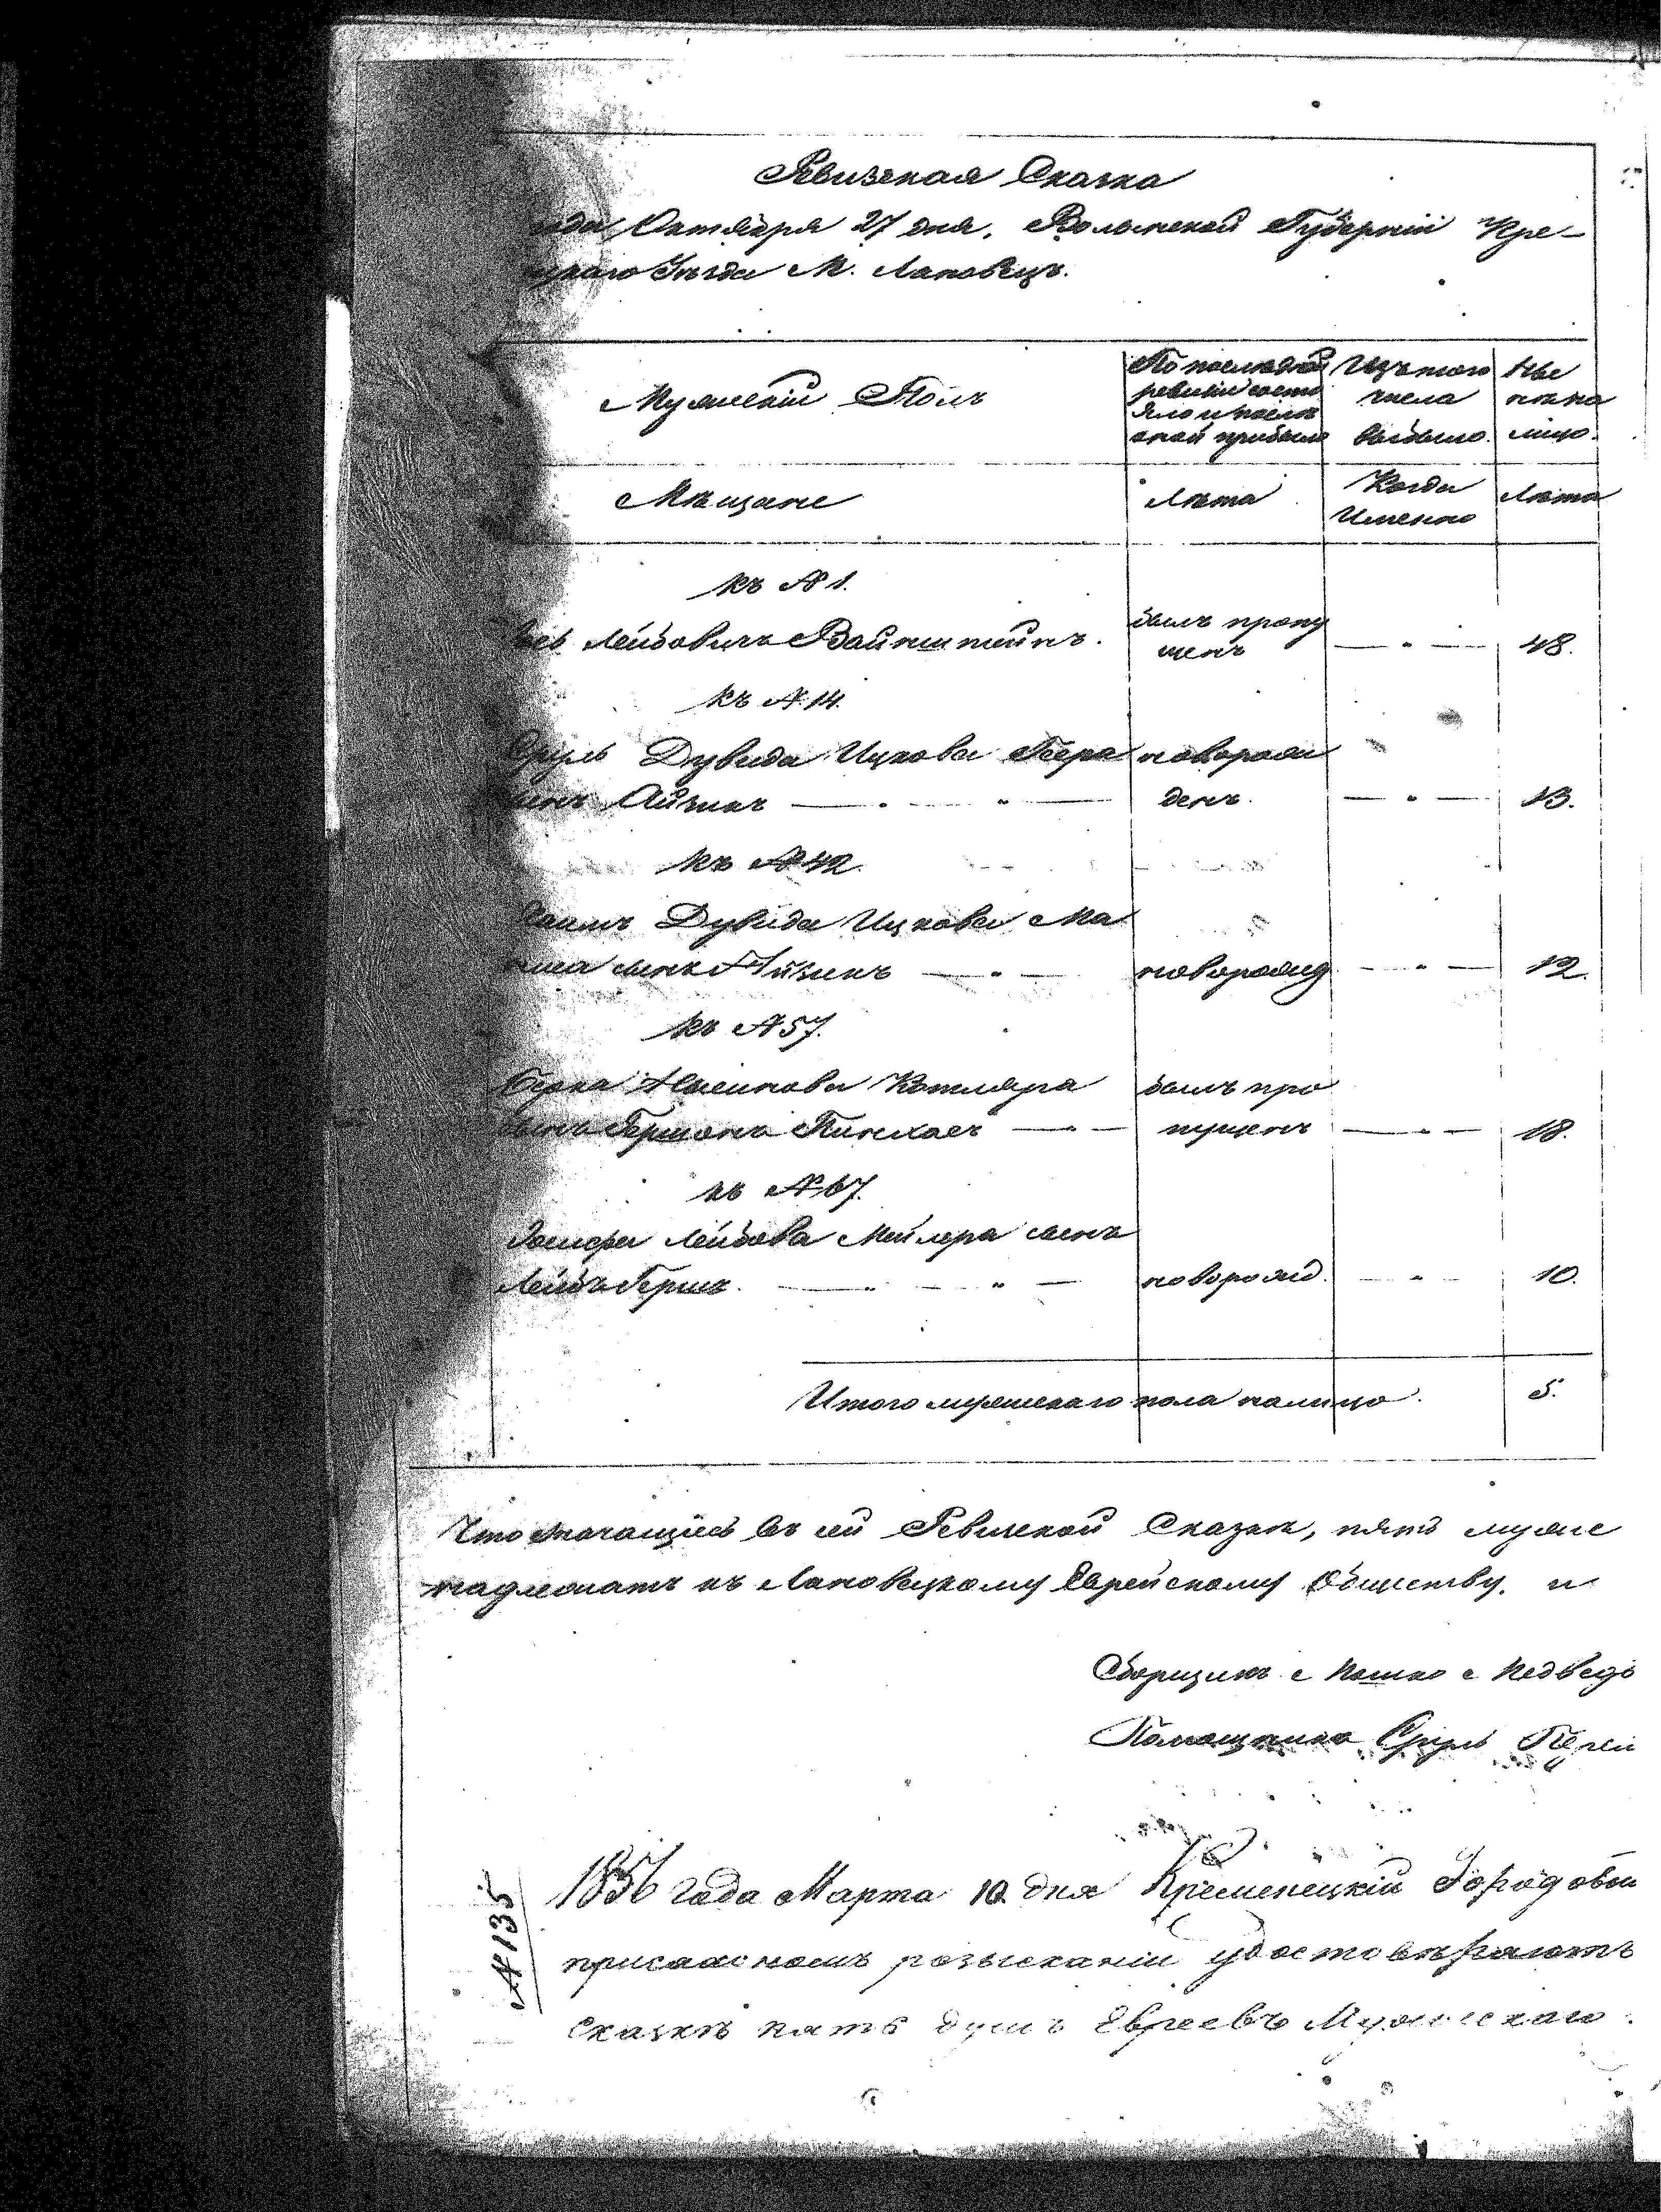 Ревизская Сказка
года Октября 27 дня. Волынской Губерніи Кре-
цкаго Уезда М. Лановецъ.
Мужескій Полъ
По последней ревизіи состояло и после оной прибыло
Изъ того числа выбыло.
Ныне на лицо.
Мещане
Лета
Когда Именно
Лета
къ № 1.
Лейбовичъ Вайнштейнъ. былъ пропу
щенъ — " — 48.
къ № 14.
Сруль Дувида Ицкова новорож
Айзикъ — " — денъ. — " — 13.
къ № 42.
Дувида Ицкова Ма
сынъ Айзикъ — " — новорожд — " — 12.
къ № 57.
Берка Котляра былъ про
сынъ Гершонъ Пинхасъ — " — пущенъ — " — 18.
къ № 67.
Лейбова Мейлера сынъ
Лейбъ Гершъ. — " — новорожд. — " — 10.
Итого мужескаго пола налицо. 5.
Что значащіеся въ сей Ревизской Сказке, пять муже
надлежатъ къ Лановецкому Еврейскому Обществу. и
Сборщикъ Мошко Медведь
Помощникъ Сруль
№ 135
1856 года Марта 10 дня Кременецкій Городовы
розысканіи удостоверяютъ
сказке пять душъ Евреевъ Мужескаго